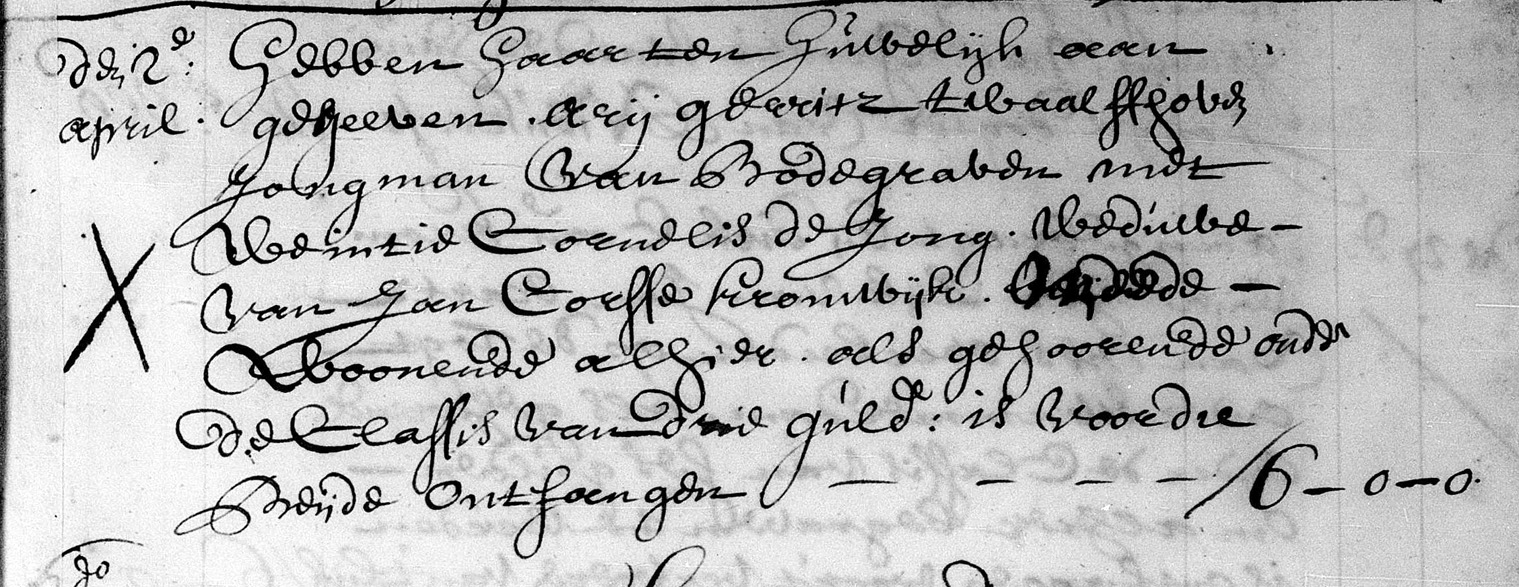 den 2e: Hebben haar ten Huwelijk aan
april: gegeeven. Arij Gerritz twaalffhoven
Jongman van Bodegraven met
Weintie Cornelis de Jong. Weduwe -
van Jan Corsse kromwijk. Beijde -
Woonende alhier. als gehoorende onder
de Classis van drie guld: is voor die
Beijde Ontfangen - - - - - /6 - 0 - 0.